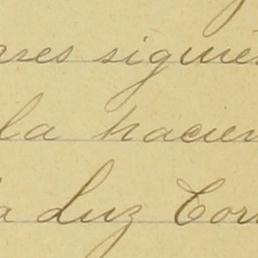 rses siguien
la hacien
a Luz Cor